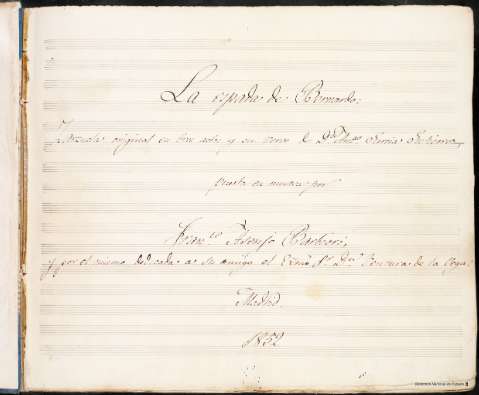 La espada de Bernardo.
Zarzuela original en tres actos y en verso de D.n Ant.o Garcia Gutierrez,
puesta en musica por
Fran.co Asenjo Barbieri,
y por el mismo dedicada a su amigo el Exmo. Sr. D.n Ventura de la Vega.
Madrid.
1852